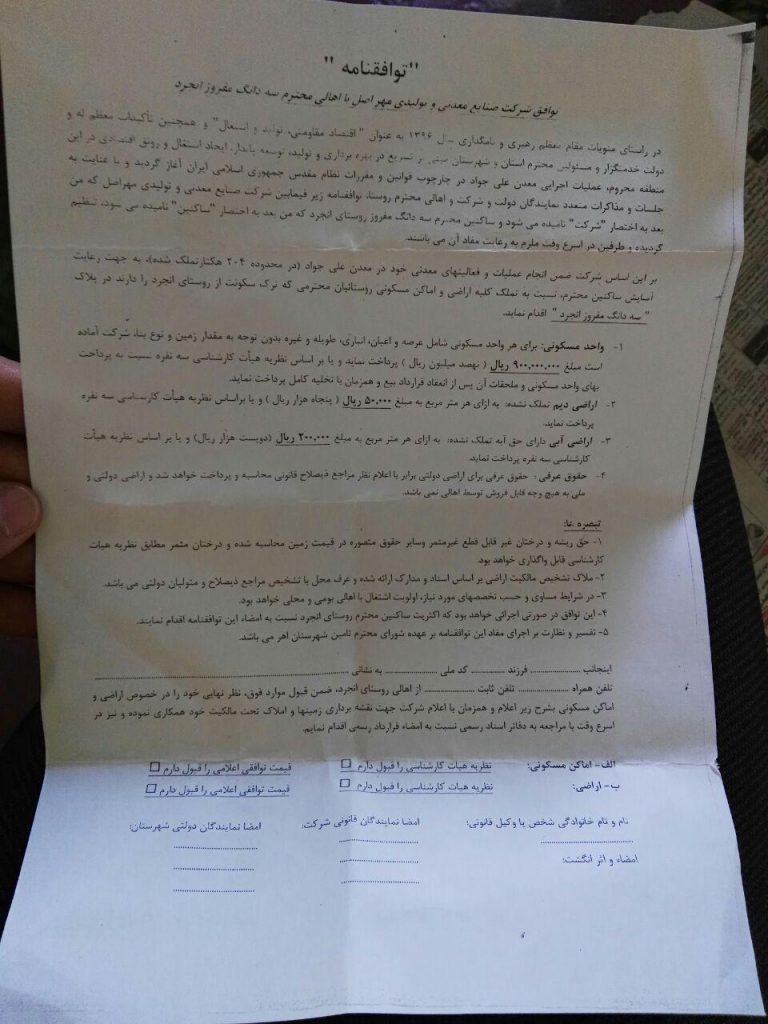 "توافقنامه"
توافق شرکت صنایع معدنی و تولیدی مهر اصل با اهالی محترم سه دانگ مفروز انجرد
در راستای منویات مقام معظم رهبری و نامگذاری سال ۱۳۹۶ به عنوان "اقتصاد مقاومتی، تولید و اشتغال" و همچنین تأکیدات معظم له و
دولت خدمتگزار و مسئولین محترم استان و شهرستان مبنی بر تسریع در بهره برداری و تولید، توسعه پایدار، ایجاد اشتغال و رونق اقتصادی در این
منطقه محروم، عملیات اجرایی معدن علی جواد در چارچوب قوانین و مقررات نظام مقدس جمهوری اسلامی ایران آغاز گردید و با عنایت به
جلسات و مذاکرات متعدد نمایندگان دولت و شرکت و اهالی محترم روستا، توافقنامه زیر فیمابین شرکت صنایع معدنی و تولیدی مهراصل که من
بعد به اختصار "شرکت" نامیده می شود و ساکنین محترم سه دانگ مفروز روستای انجرد که من بعد به اختصار "ساکنین" نامیده می شود، تنظیم
گردیده و طرفین در اسرع وقت ملزم به رعایت مفاد آن می باشند.
بر این اساس شرکت ضمن انجام عملیات و فعالیتهای معدنی خود در معدن علی جواد (در محدوده ۲۰۴ هکتارتملک شده)، به جهت رعایت
آسایش ساکنین محترم، نسبت به تملک کلیه اراضی و اماکن مسکونی روستائیان محترمی که ترک سکونت از روستای انجرد را دارند در پلاک
"سه دانگ مفروز انجرد" اقدام نماید.
۱- واحد مسکونی: برای هر واحد مسکونی شامل عرصه و اعیان، انباری، طویله و غیره بدون توجه به مقدار زمین و نوع بنا، شرکت آماده
است مبلغ ۹۰۰.۰۰۰.۰۰۰ ریال ( نهصد میلیون ریال ) پرداخت نماید و یا بر اساس نظریه هیأت کارشناسی سه نفره نسبت به پرداخت
بهای واحد مسکونی و ملحقات آن پس از انعقاد قرارداد بیع و همزمان با تخلیه کامل پرداخت نماید.
۲- اراضی دیم تملک نشده: به ازای هر متر مربع به مبلغ ۵۰.۰۰۰ ریال ( پنجاه هزار ریال ) و یا براساس نظریه هیأت کارشناسی سه نفره
پرداخت نماید.
۳- اراضی آبی دارای حق آبه تملک نشده: به ازای هر متر مربع به مبلغ ۲۰۰.۰۰۰ ریال (دویست هزار ریال) و یا بر اساس نظریه هیأت
کارشناسی سه نفره پرداخت نماید.
۴- حقوق عرفی : حقوق عرفی برای اراضی دولتی برابر با اعلام نظر مراجع ذیصلاح قانونی محاسبه و پرداخت خواهد شد و اراضی دولتی و
ملی به هیچ وجه قابل فروش توسط اهالی نمی باشد.
تبصره ها:
۱- حق ریشه و درختان غیر قابل قطع غیرمثمر وسایر حقوق متصوره در قیمت زمین محاسبه شده و درختان مثمر مطابق نظریه هیات
کارشناسی قابل واگذاری خواهد بود.
۲- ملاک تشخیص مالکیت اراضی بر اساس اسناد و مدارک ارائه شده و عرف محل با تشخیص مراجع ذیصلاح و متولیان دولتی می باشد.
۳- در شرایط مساوی و حسب تخصصهای مورد نیاز، اولویت اشتغال با اهالی بومی و محلی خواهد بود.
۴- این توافق در صورتی اجرائی خواهد بود که اکثریت ساکنین محترم روستای انجرد نسبت به امضاء این توافقنامه اقدام نمایند.
۵- تفسیر و نظارت بر اجرای مفاد این توافقنامه بر عهده شورای محترم تامین شهرستان اهر می باشد.
اینجانب ................ فرزند ............ کد ملی ............ به نشانی ................................
تلفن همراه ................ تلفن ثابت ................ از اهالی روستای انجرد، ضمن قبول موارد فوق، نظر نهایی خود را در خصوص اراضی و
اماکن مسکونی بشرح زیر اعلام و همزمان با اعلام شرکت جهت نقشه برداری زمینها و املاک تحت مالکیت خود همکاری نموده و نیز در
اسرع وقت با مراجعه به دفاتر اسناد رسمی نسبت به امضاء قرارداد رسمی اقدام نمایم.
الف- اماکن مسکونی: نظریه هیات کارشناسی را قبول دارم □ قیمت توافقی اعلامی را قبول دارم □
ب- اراضی: نظریه هیات کارشناسی را قبول دارم □ قیمت توافقی اعلامی را قبول دارم □
نام و نام خانوادگی شخص یا وکیل قانونی: امضا نمایندگان قانونی شرکت: امضا نمایندگان دولتی شهرستان:
امضاء و اثر انگشت: